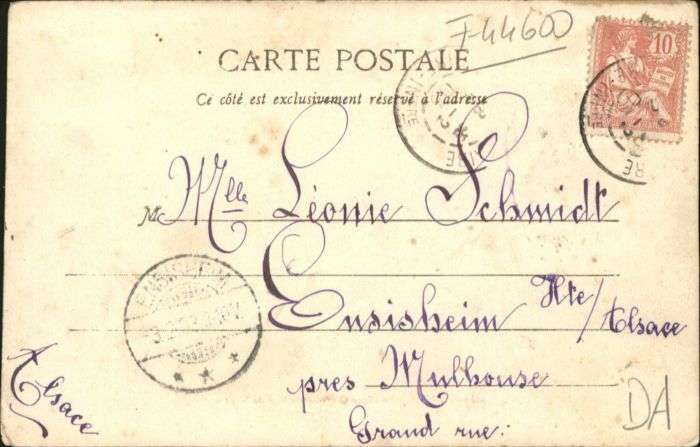 F44600
CARTE POSTALE
Ce côté est exclusivement réservé à l'adresse
10
M
Mlle Léonie Schmidt
Ensisheim Hte/Alsace
près Mulhouse
Grand rue:
Alsace
ENSISHEIM
DA